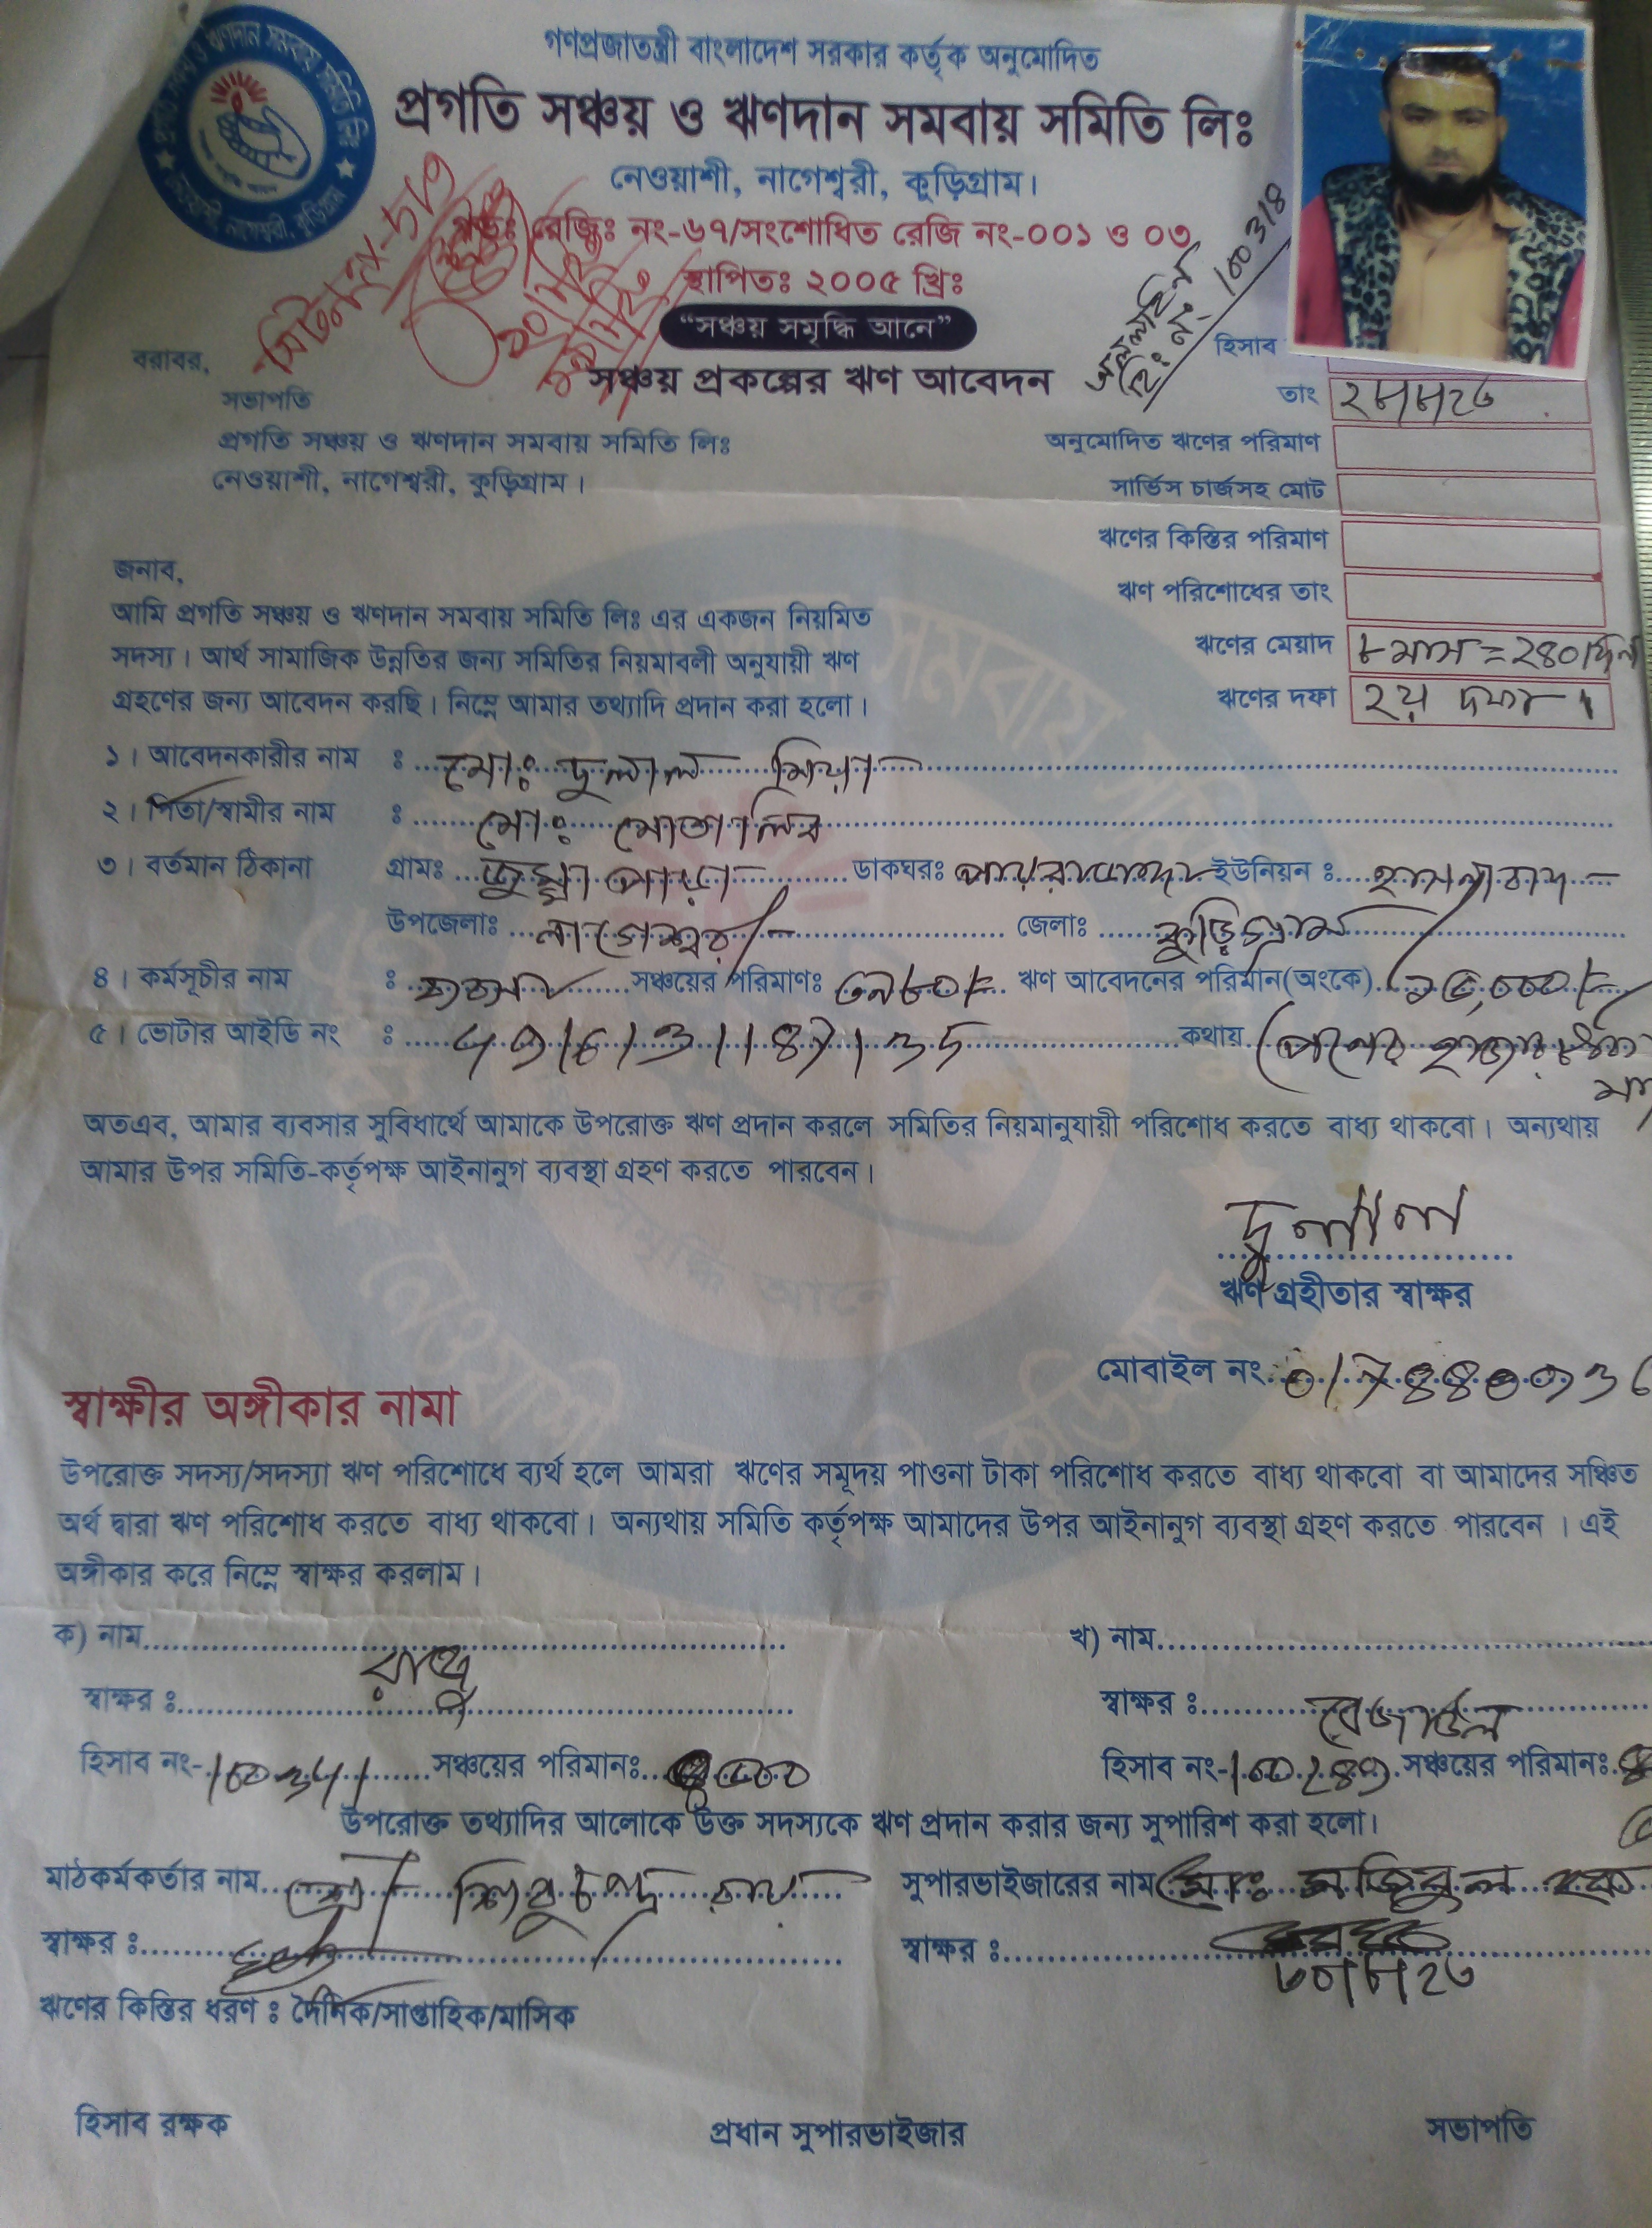 গণপ্রজাতন্ত্রী বাংলাদেশ সরকার কর্তৃক অনুমোদিত
প্রগতি সঞ্চয় ও ঋণদান সমবায় সমিতি লিঃ
নেওয়াশী, নাগেশ্বরী, কুড়িগ্রাম।
রেজিঃ নং-৬৭/সংশোধিত রেজি নং-০০১ ও ০৩
স্থাপিতঃ ২০০৫ খ্রিঃ
“সঞ্চয় সমৃদ্ধি আনে”
সঞ্চয় প্রকল্পের ঋণ আবেদন
হিসাব
বরাবর,
সভাপতি
প্রগতি সঞ্চয় ও ঋণদান সমবায় সমিতি লিঃ
নেওয়াশী, নাগেশ্বরী, কুড়িগ্রাম।
তাং ২৮/৮/২৩
অনুমোদিত ঋণের পরিমাণ
সার্ভিস চার্জসহ মোট
ঋণের কিস্তির পরিমাণ
ঋণ পরিশোধের তাং
ঋণের মেয়াদ ৮ মাস = ২৪০ দিন
ঋণের দফা ২য় দফা।
জনাব,
আমি প্রগতি সঞ্চয় ও ঋণদান সমবায় সমিতি লিঃ এর একজন নিয়মিত
সদস্য। আর্থ সামাজিক উন্নতির জন্য সমিতির নিয়মাবলী অনুযায়ী ঋণ
গ্রহণের জন্য আবেদন করছি। নিম্নে আমার তথ্যাদি প্রদান করা হলো।
১। আবেদনকারীর নাম : মোঃ দুলাল মিয়া
২। পিতা/স্বামীর নাম : মোঃ মোতালিব
৩। বর্তমান ঠিকানা গ্রামঃ পাড়া ডাকঘরঃ ইউনিয়ন : হাসনাবাদ
উপজেলাঃ নাগেশ্বরী জেলাঃ কুড়িগ্রাম
৪। কর্মসূচীর নাম : ব্যবসা সঞ্চয়ের পরিমাণঃ ঋণ আবেদনের পরিমান(অংকে) ১৫,০০০/-
৫। ভোটার আইডি নং : কথায় (পনের হাজার টাকা মাত্র)
অতএব, আমার ব্যবসার সুবিধার্থে আমাকে উপরোক্ত ঋণ প্রদান করলে সমিতির নিয়মানুযায়ী পরিশোধ করতে বাধ্য থাকবো। অন্যথায়
আমার উপর সমিতি-কর্তৃপক্ষ আইনানুগ ব্যবস্থা গ্রহণ করতে পারবেন।
দুলাল
ঋণ গ্রহীতার স্বাক্ষর
মোবাইল নং
স্বাক্ষীর অঙ্গীকার নামা
উপরোক্ত সদস্য/সদস্যা ঋণ পরিশোধে ব্যর্থ হলে আমরা ঋণের সমূদয় পাওনা টাকা পরিশোধ করতে বাধ্য থাকবো বা আমাদের সঞ্চিত
অর্থ দ্বারা ঋণ পরিশোধ করতে বাধ্য থাকবো। অন্যথায় সমিতি কর্তৃপক্ষ আমাদের উপর আইনানুগ ব্যবস্থা গ্রহণ করতে পারবেন । এই
অঙ্গীকার করে নিম্নে স্বাক্ষর করলাম।
ক) নাম
খ) নাম
স্বাক্ষর : রাজু
স্বাক্ষর : রেজাউল
হিসাব নং- সঞ্চয়ের পরিমানঃ
হিসাব নং- সঞ্চয়ের পরিমানঃ
উপরোক্ত তথ্যাদির আলোকে উক্ত সদস্যকে ঋণ প্রদান করার জন্য সুপারিশ করা হলো।
মাঠকর্মকর্তার নাম শ্রী রায় সুপারভাইজারের নাম মোঃ মজিবুল হক
স্বাক্ষর :
স্বাক্ষর : ৩০/৮/২৩
ঋণের কিস্তির ধরণ : দৈনিক/সাপ্তাহিক/মাসিক
হিসাব রক্ষক
প্রধান সুপারভাইজার
সভাপতি